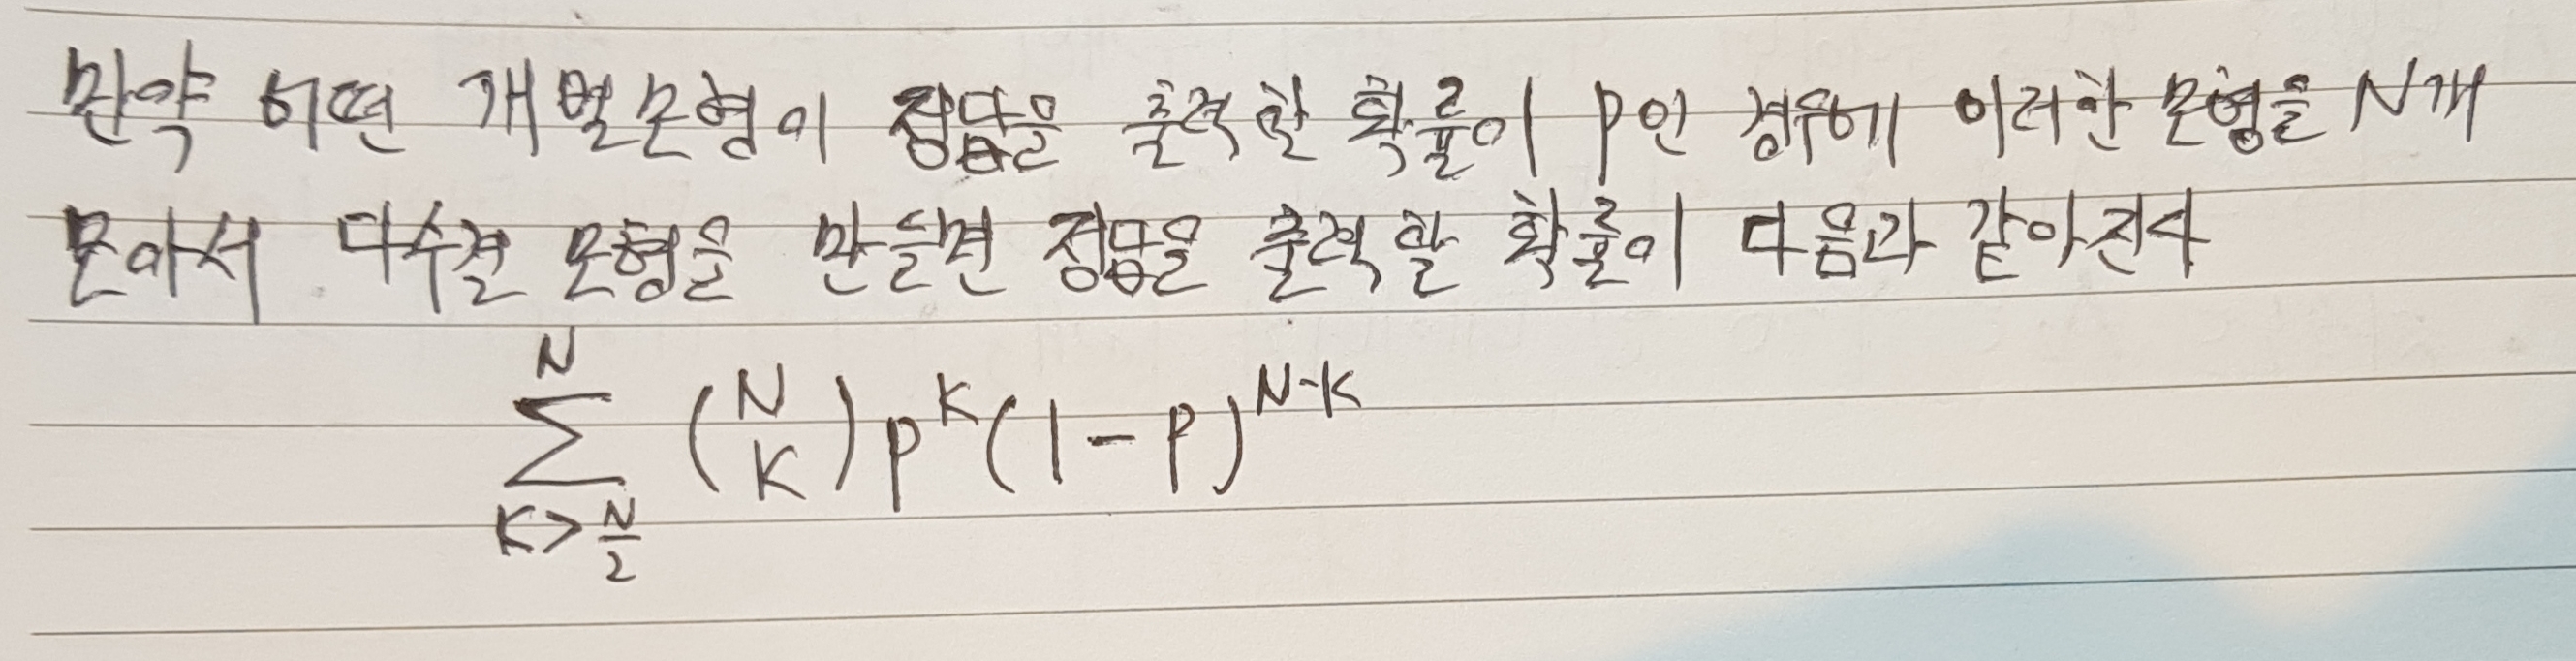 만약 어떤 개별모형이 정답을 출력할 확률이 P인 경우에 이러한 모형을 N개
모아서 다수결 모형을 만들면 정답을 출력할 확률이 다음과 같아진다
\sum_{K>\frac{N}{2}}^{N} \binom{N}{K} P^{K}(1-P)^{N-K}